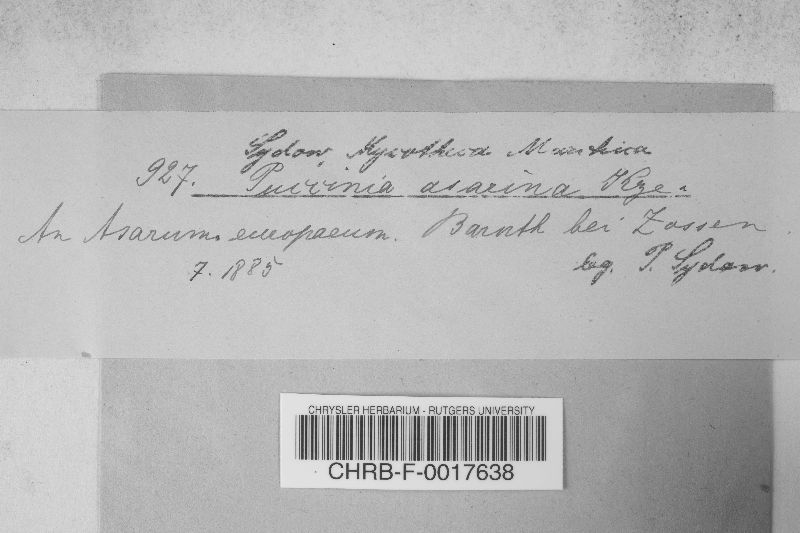 Sydow, Mycotheca Marchica
927. Puccinia asarina Kze.
An Asarum europaeum. Baruth bei Zossen.
7. 1885 leg. P. Sydow.
CHRYSLER HERBARIUM - RUTGERS UNIVERSITY
CHRB-F-0017638